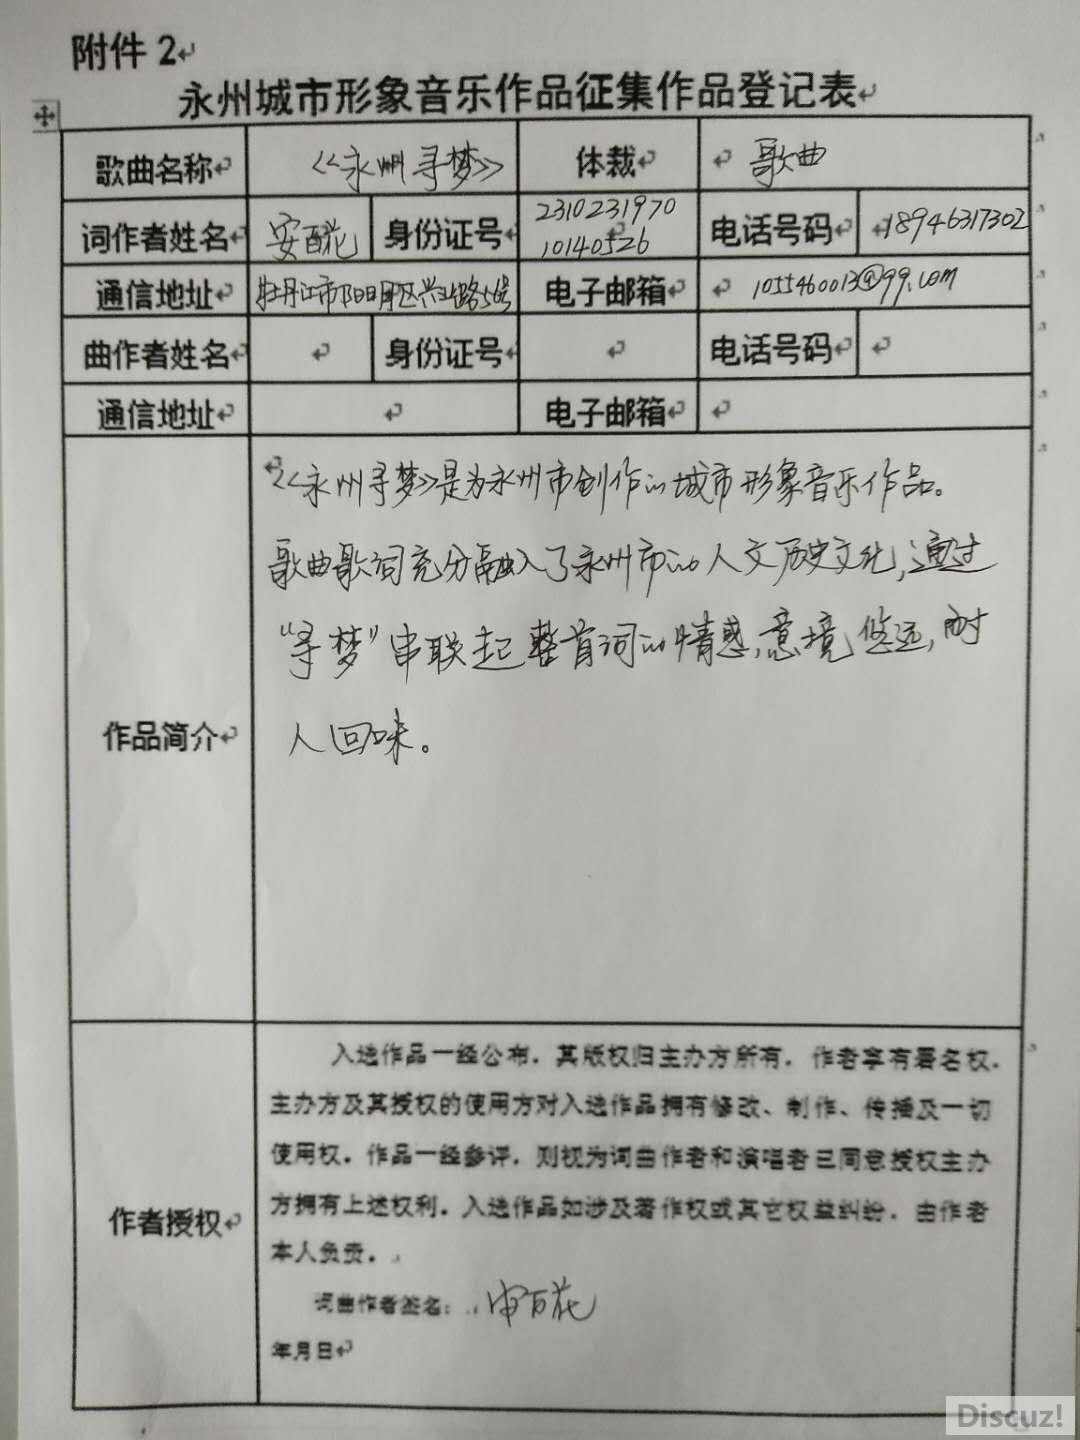 附件 2
永州城市形象音乐作品征集作品登记表
歌曲名称 《永州寻梦》 体裁 歌曲
词作者姓名 安百花 身份证号 2310231970 10140526 电话号码 18946317302
通信地址 牡丹江市阳明区兴业路5号 电子邮箱 1055460013@qq.com
曲作者姓名 身份证号 电话号码
通信地址 电子邮箱
《永州寻梦》是为永州市创作的城市形象音乐作品。
歌曲歌词充分融入了永州市的人文历史文化,通过
“寻梦”串联起整首词的情感,意境悠远,耐
作品简介 人回味。
入选作品一经公布，其版权归主办方所有，作者享有署名权，
主办方及其授权的使用方对入选作品拥有修改、制作、传播及一切
使用权。作品一经参评，则视为词曲作者和演唱者已同意授权主办
作者授权 方拥有上述权利。入选作品如涉及著作权或其它权益纠纷，由作者
本人负责。
词曲作者签名： 安百花
年月日
Discuz!